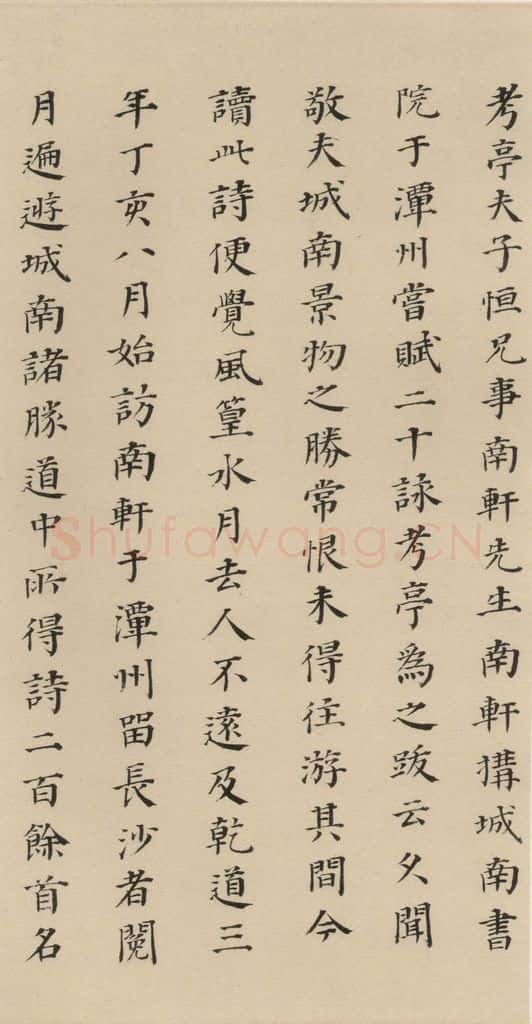 考亭夫子恒兄事南軒先生南軒搆城南書
院于潭州嘗賦二十詠考亭為之跋云久聞
敬夫城南景物之勝常恨未得往游其間今
讀此詩便覺風篁水月去人不遠及乾道三
年丁亥八月始訪南軒于潭州留長沙者閱
月遍遊城南諸勝道中所得詩二百餘首名
Shufawang.CN